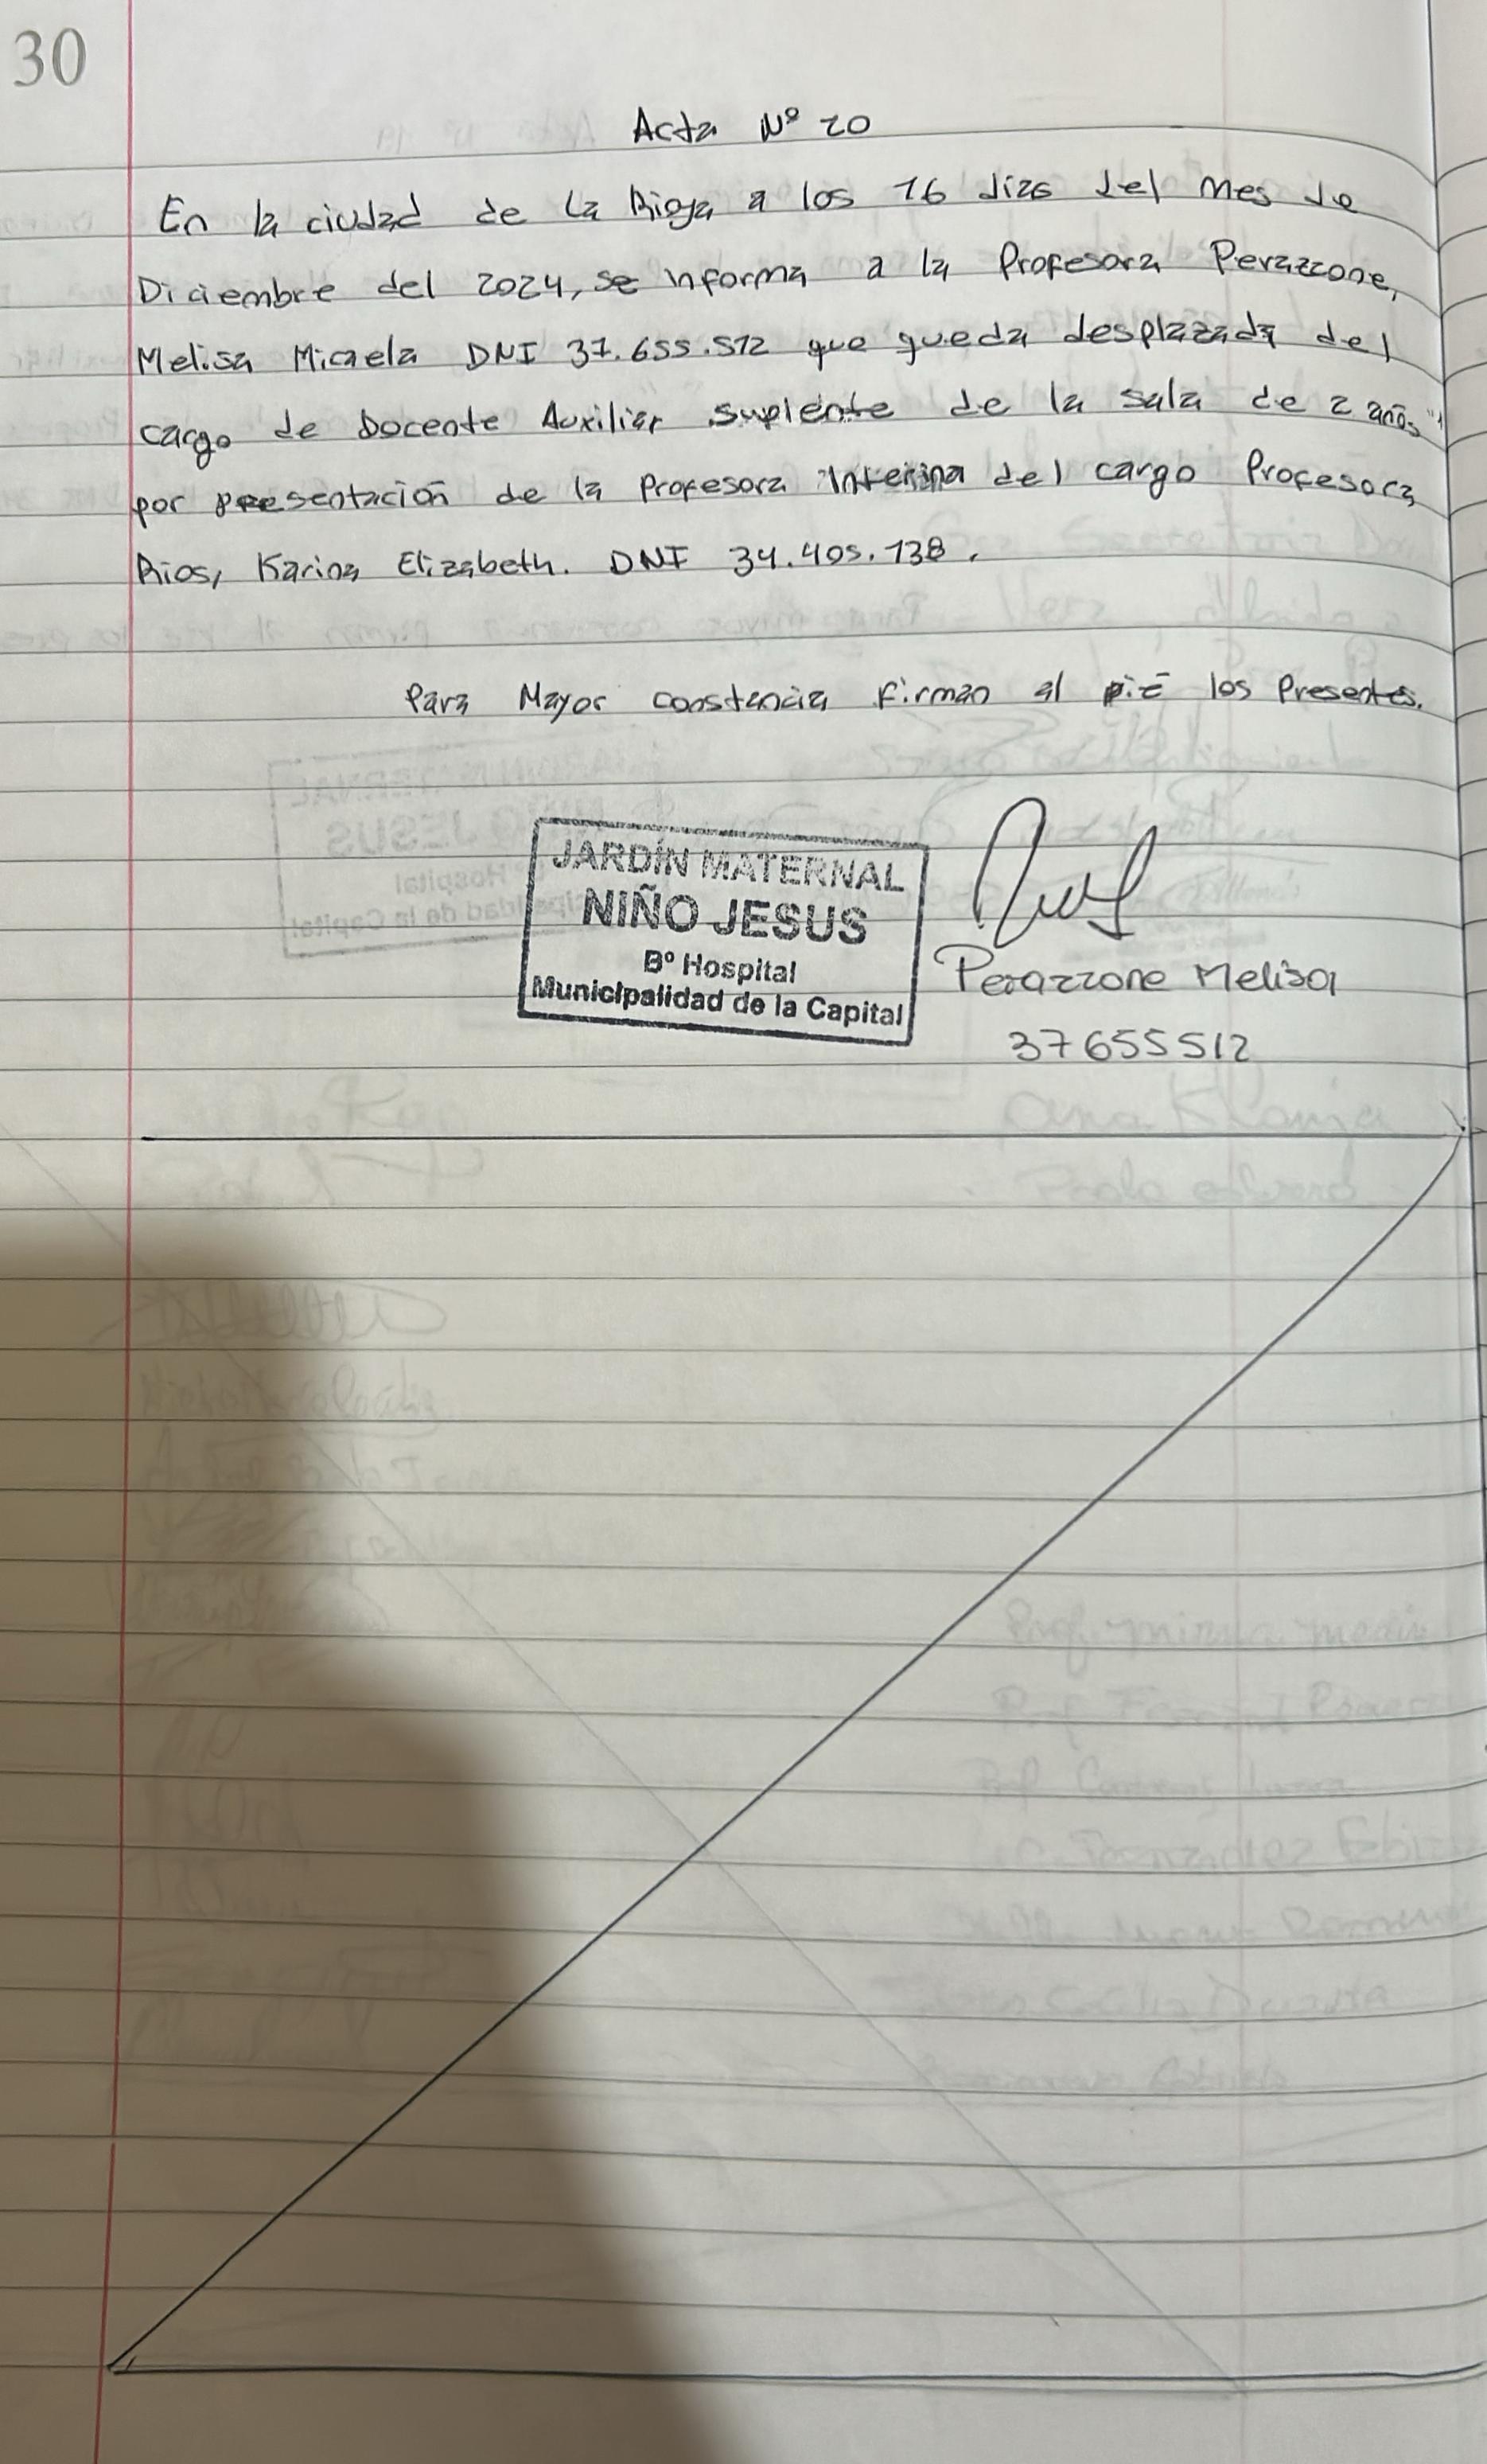 30
Acta Nº 20
En la ciudad de La Rioja a los 16 dias del mes de
Diciembre del 2024, se informa a la Profesora Perazzone,
Melisa Micaela DNI 37.655.512 que queda desplazada del
cargo de Docente Auxiliar suplente de la sala de 2 años"
por presentación de la Profesora Interina del cargo Profesora
Rios, Karina Elizabeth. DNI 34.405.138.
Para Mayor constancia firman al pie los Presentes.
JARDÍN MATERNAL
NIÑO JESUS
Bº Hospital
Municipalidad de la Capital
Perazzone Melisa
37655512